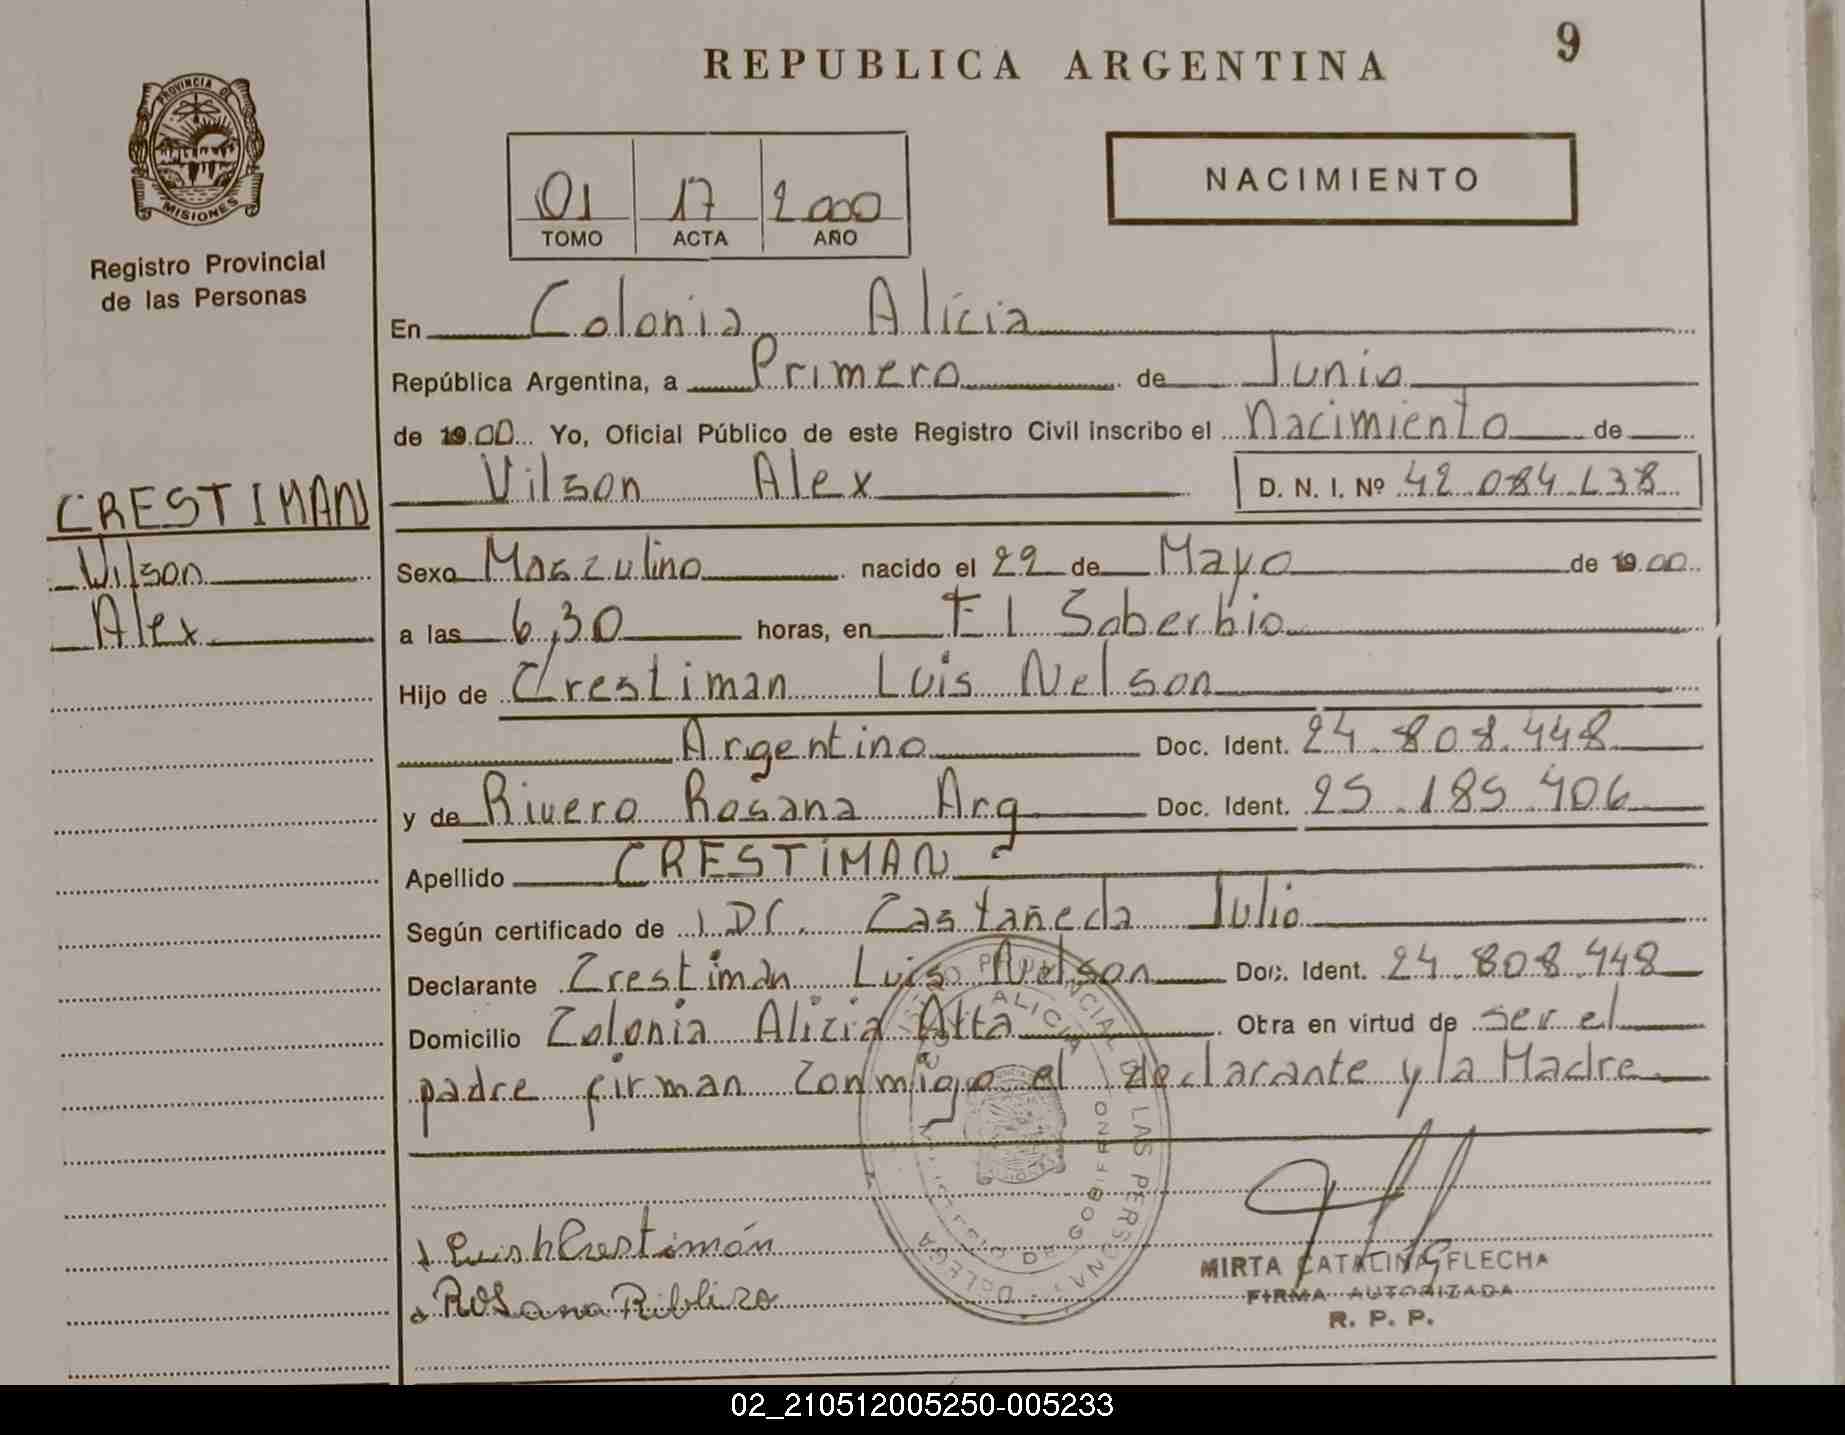 9
REPUBLICA ARGENTINA
PROVINCIA DE
MISIONES
Registro Provincial
de las Personas
01 17 2000
TOMO ACTA AÑO
NACIMIENTO
En Colonia Alicia
República Argentina, a Primero de Junio
de 1900 Yo, Oficial Público de este Registro Civil inscribo el Nacimiento de
Vilson Alex D. N. I. Nº 42.084.138
CRESTIMAN
Wilson
Alex
Sexo Masculino nacido el 22 de Mayo de 1900
a las 6,30 horas, en El Soberbio
Hijo de Crestiman Luis Nelson
Argentino Doc. Ident. 24.808.448
y de Rivero Rosana Arg Doc. Ident. 25.185.406
Apellido CRESTIMAN
Según certificado de Dr. Castañeda Julio
Declarante Crestiman Luis Nelson Doc. Ident. 24.808.448
Domicilio Colonia Alicia Alta Obra en virtud de ser el
padre firman conmigo el declarante y la Madre
MIRTA CATALINA FLECHA
FIRMA AUTORIZADA
R. P. P.
02_210512005250-005233